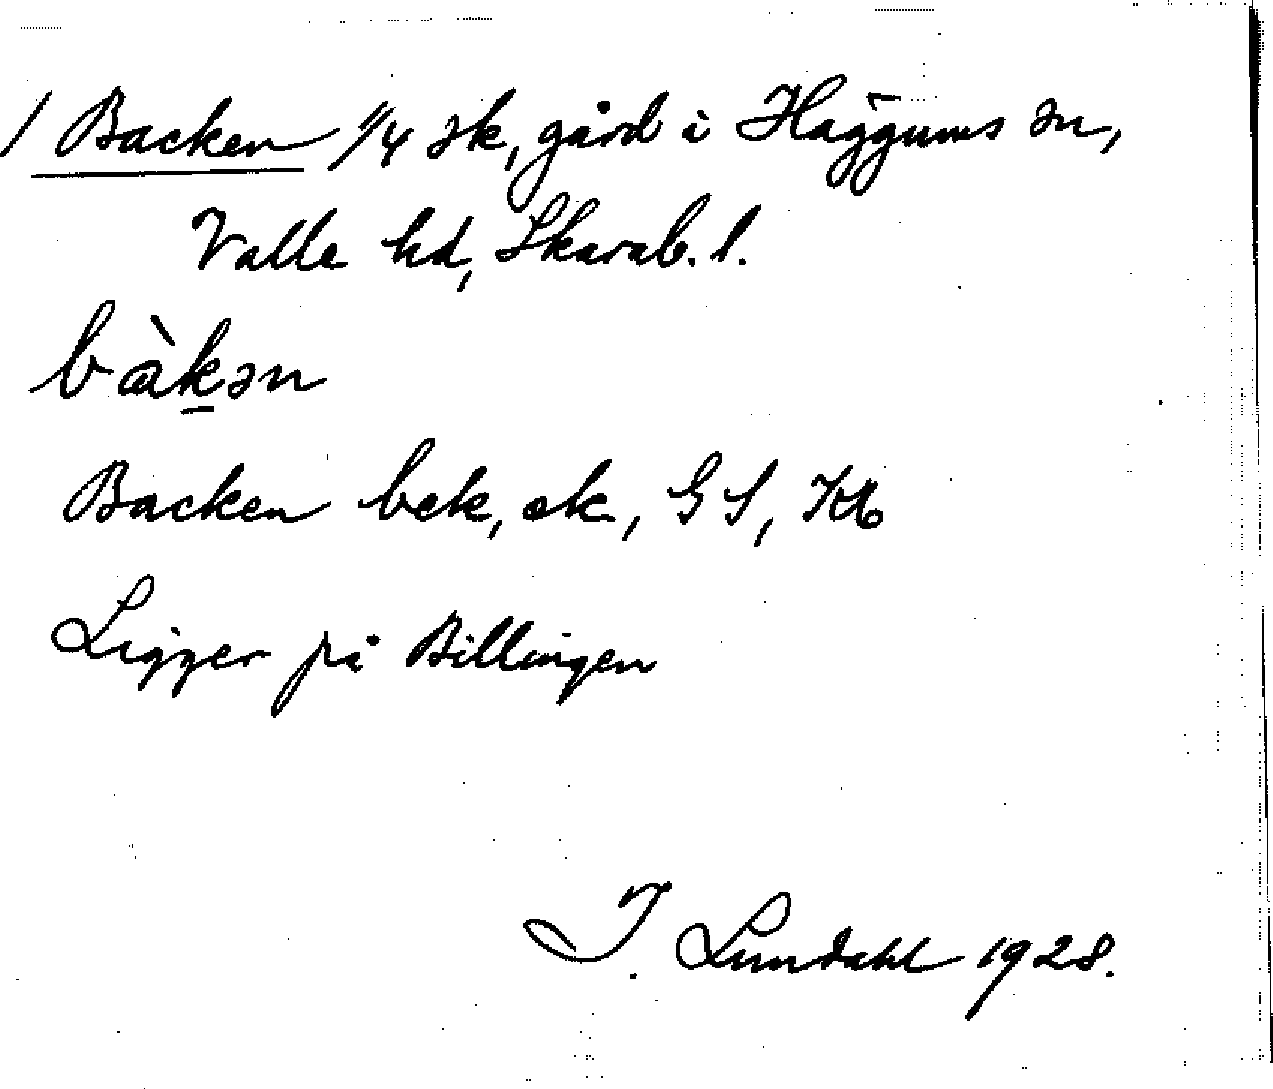 / Backen 1/4 sk, gård i Häggums sn,
Valle hd, Skarab. l.
bàkən
Backen bek, ek, GS, Kb
Ligger på Billingen
I. Lundahl 1928.